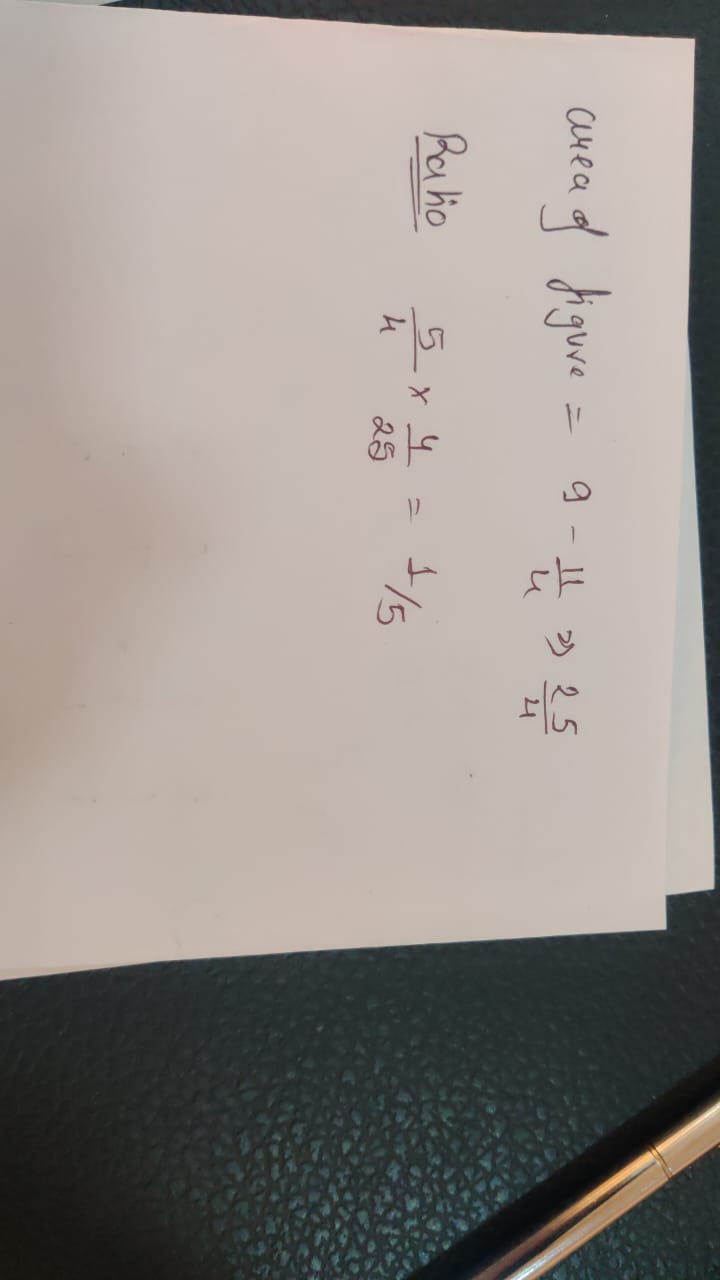 area of figure = 9 - 11/4 » 25/4
Ratio 5/4 × 4/25 = 1/5